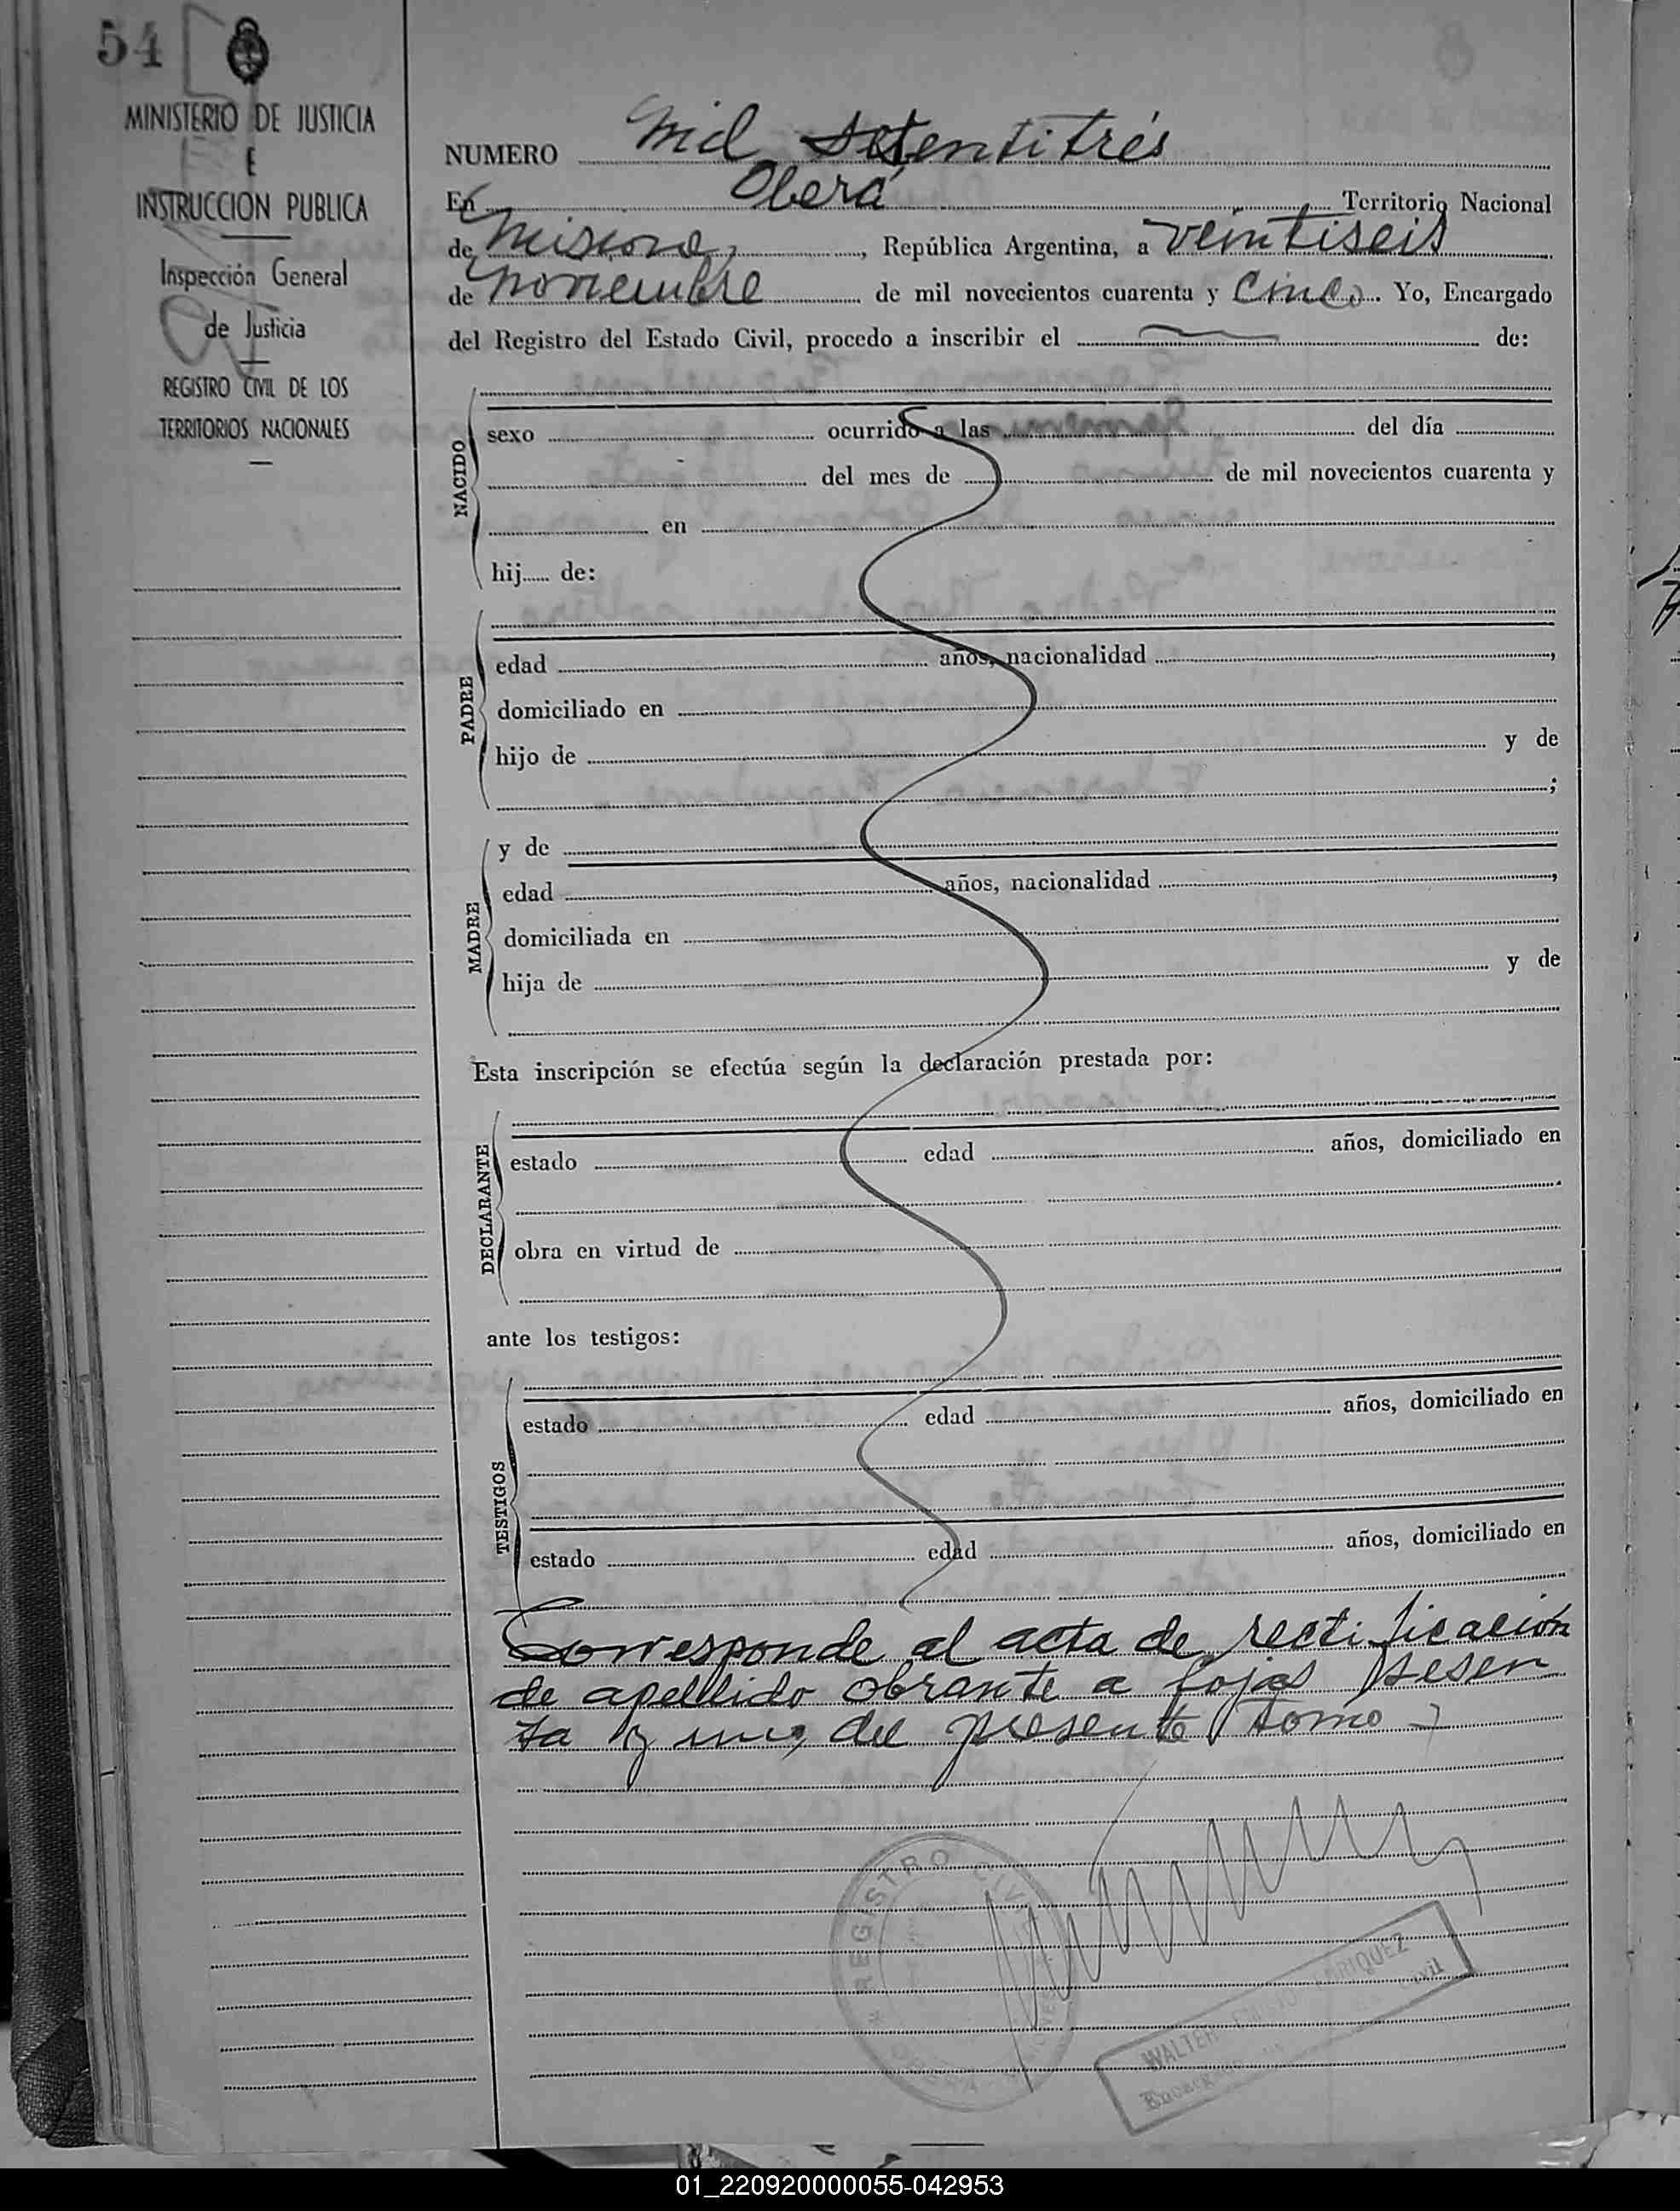 54
MINISTERIO DE JUSTICIA
E
INSTRUCCION PUBLICA
Inspección General
de Justicia
REGISTRO CIVIL DE LOS
TERRITORIOS NACIONALES
NUMERO Mil setentitrés
En Oberá Territorio Nacional
de Misiones, República Argentina, a veintiseis
de noviembre de mil novecientos cuarenta y cinco. Yo, Encargado
del Registro del Estado Civil, procedo a inscribir el de:
NACIDO
sexo ocurrido a las del día
del mes de de mil novecientos cuarenta y
en
hij de:
PADRE
edad años, nacionalidad ,
domiciliado en
hijo de y de
;
MADRE
y de
edad años, nacionalidad ,
domiciliada en
hija de y de
Esta inscripción se efectúa según la declaración prestada por:
DECLARANTE
estado edad años, domiciliado en
obra en virtud de
ante los testigos:
TESTIGOS
estado edad años, domiciliado en
estado edad años, domiciliado en
Corresponde al acta de rectificación
de apellido obrante a fojas sesen
ta y uno, del presente tomo
REGISTRO CIVIL
WALTER
01_220920000055-042953